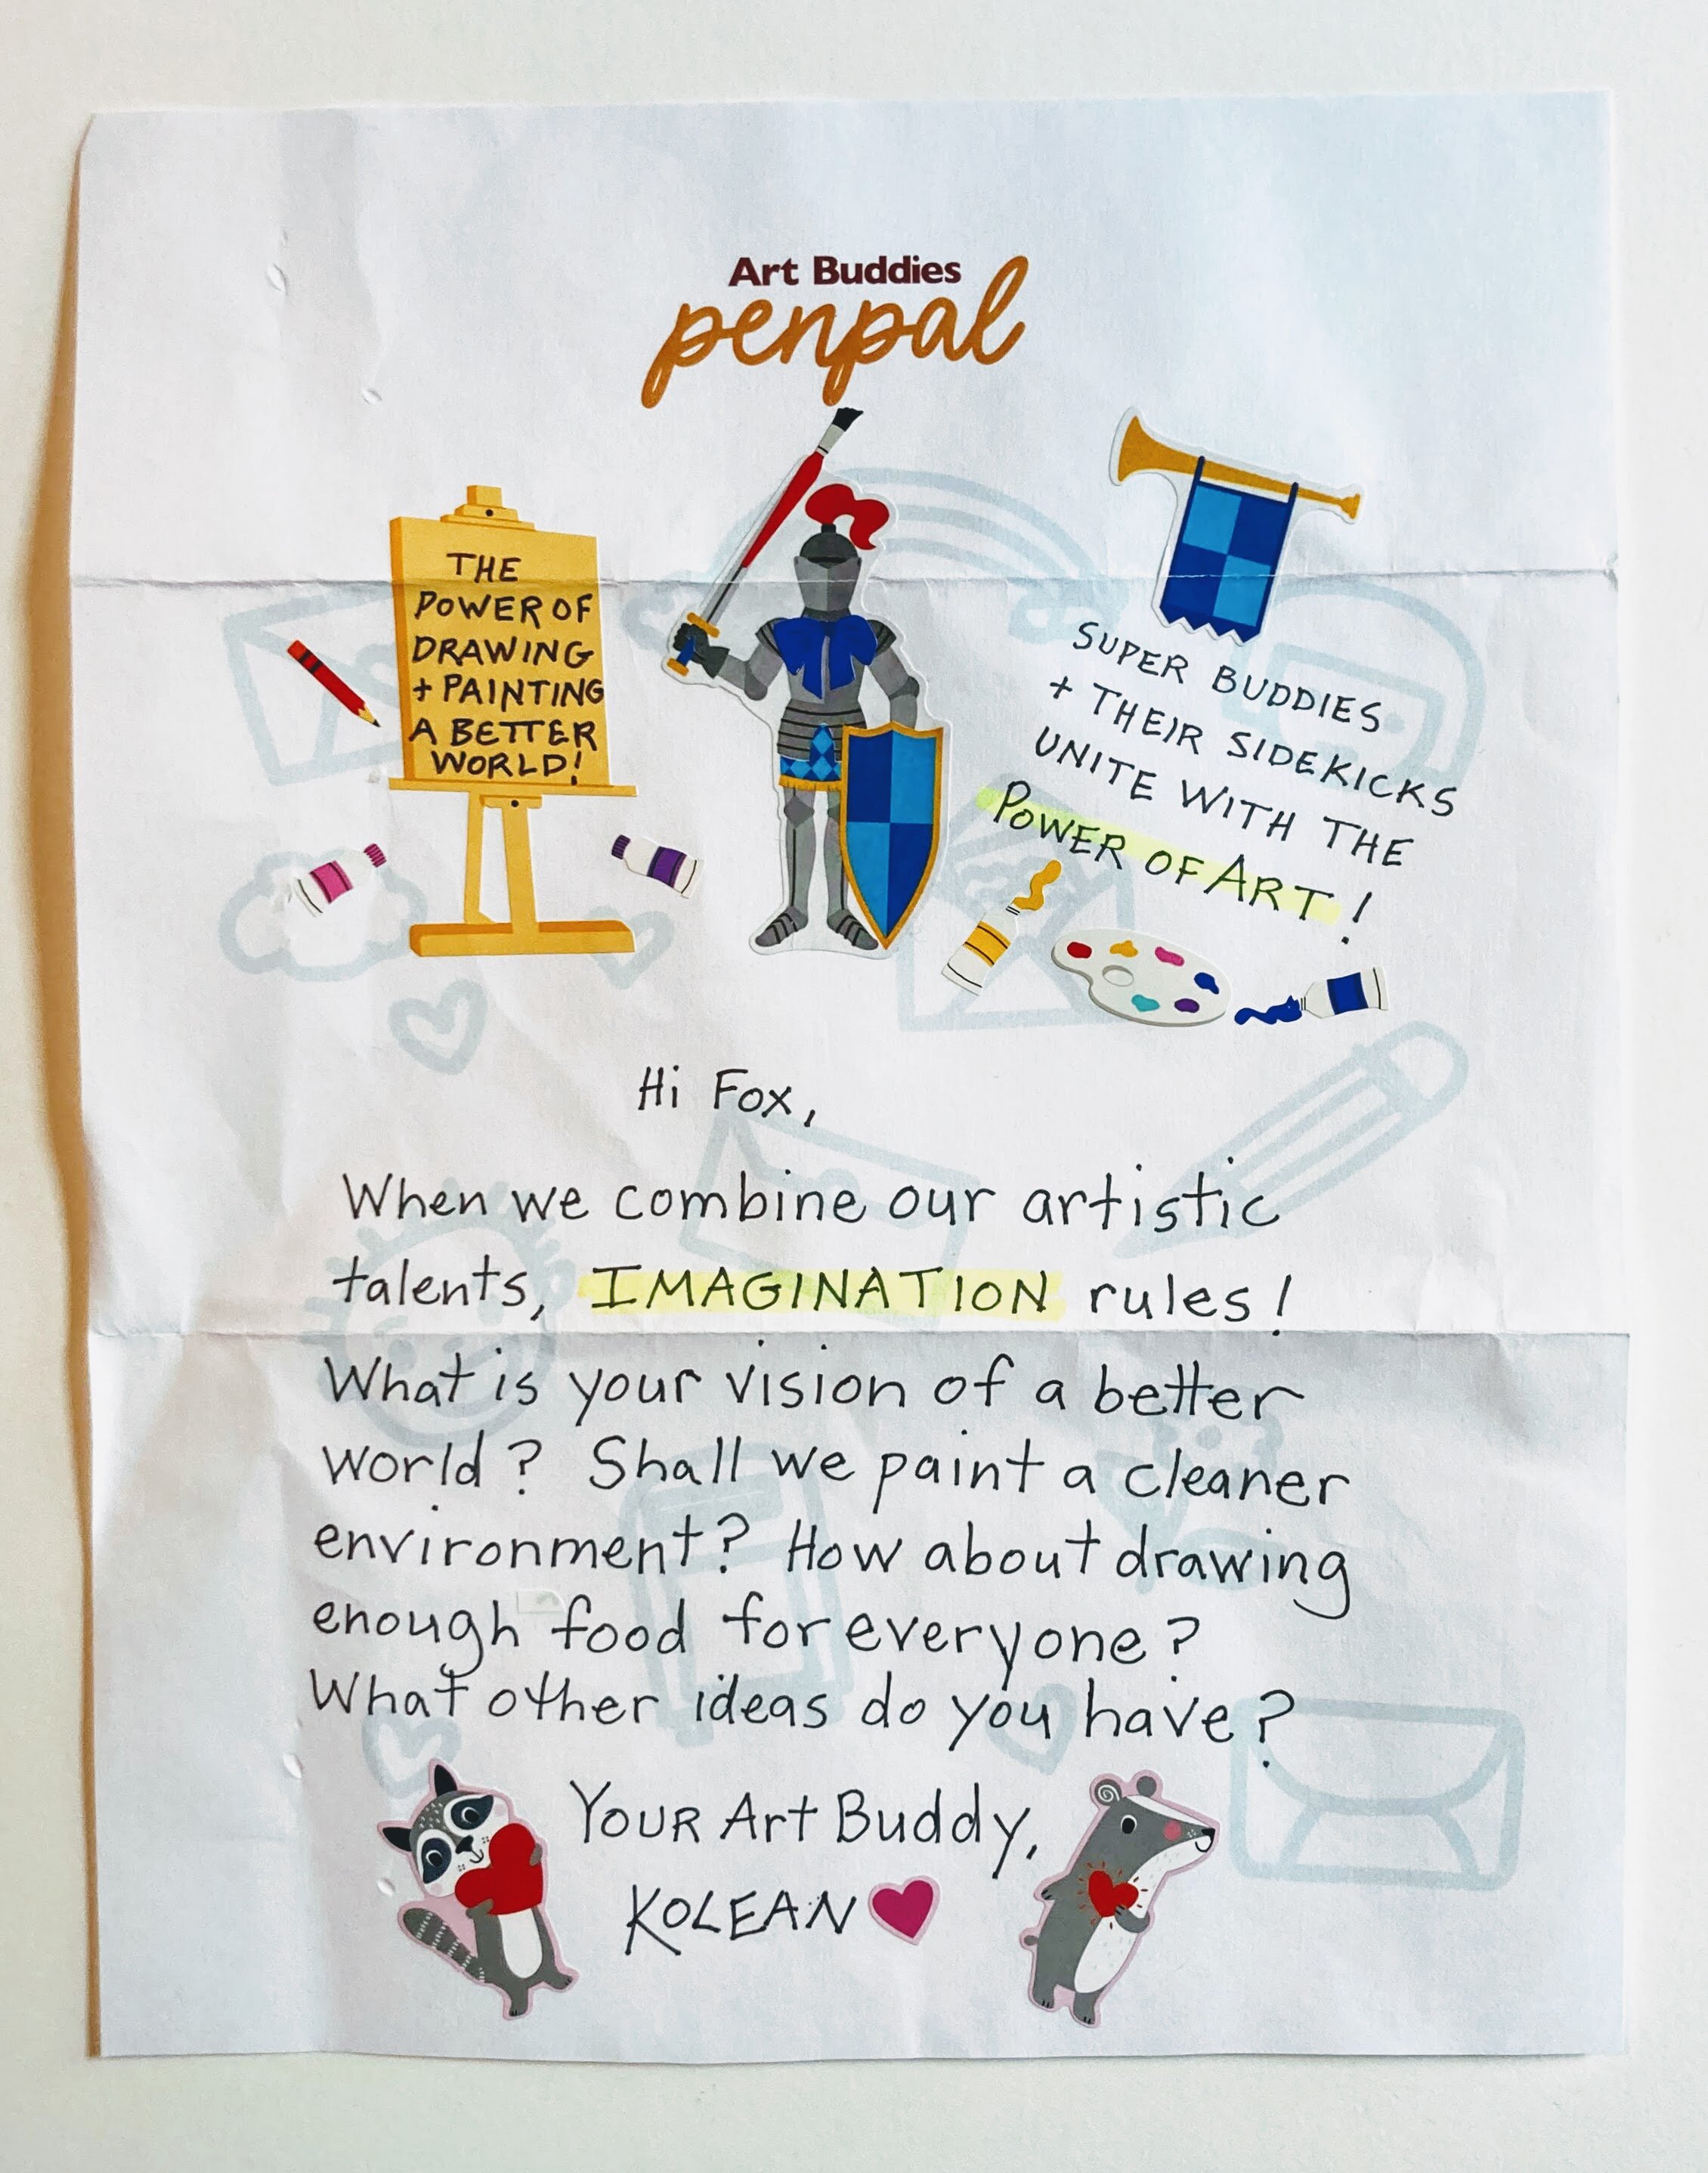 Art Buddies
penpal
THE
POWER OF
DRAWING
+ PAINTING
A BETTER
WORLD!
SUPER BUDDIES
+ THEIR SIDEKICKS
UNITE WITH THE
POWER OF ART!
Hi Fox,
When we combine our artistic
talents, IMAGINATION rules!
What is your vision of a better
world? Shall we paint a cleaner
environment? How about drawing
enough food for everyone?
What other ideas do you have?
YOUR Art Buddy,
KOLEAN